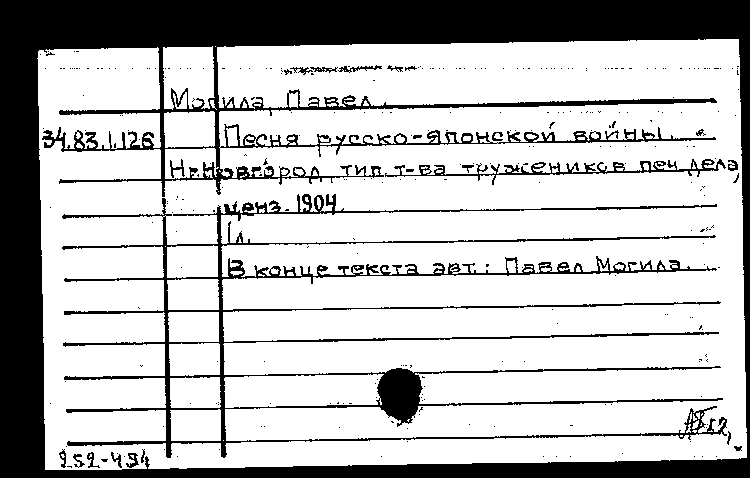 Могила, Павел.
34.83.1.126 Песня русско-японской войны.
Н.-Новгород, тип. т-ва тружеников печ. дела,
ценз. 1904.
1л.
В конце текста авт.: Павел Могила.
252-494